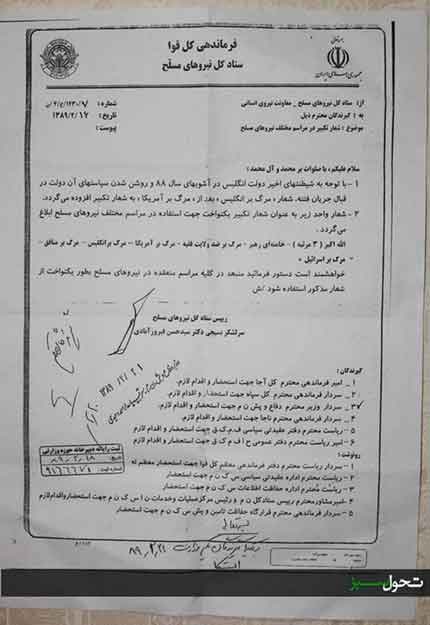 فرماندهی کل قوا
ستاد کل نیروهای مسلح
جمهوری اسلامی ایران
شماره :
تاریخ : ۱۳۸۹/۲/۱۷
پیوست :
از : ستاد کل نیروهای مسلح _ معاونت نیروی انسانی
به : گیرندگان محترم ذیل
موضوع : شعار تکبیر در مراسم مختلف نیروهای مسلح
سلام علیکم، با صلوات بر محمد و آل محمد :
۱ – با توجه به شیطنتهای اخیر دولت انگلیس در آشوبهای سال ۸۸ و روشن شدن سیاستهای آن دولت در
قبال جریان فتنه، شعار ، مرگ بر انگلیس ، بعد از ، مرگ بر آمریکا ، به شعار تکبیر افزوده می‌گردد.
۲ – شعار واحد زیر به عنوان شعار تکبیر یکنواخت جهت استفاده در مراسم مختلف نیروهای مسلح ابلاغ
می‌گردد .
الله اکبر ( ۳ مرتبه ) – خامنه‌ای رهبر – مرگ بر ضد ولایت فقیه – مرگ بر آمریکا – مرگ برانگلیس – مرگ بر منافق –
مرگ بر اسرائیل
خواهشمند است دستور فرمائید منبعد در کلیه مراسم منعقده در نیروهای مسلح بطور یکنواخت از
شعار مذکور استفاده شود /ش
رییس ستاد کل نیروهای مسلح
سرلشکر بسیجی دکتر سیدحسن فیروزآبادی
گیرندگان :
۱ – امیر فرماندهی محترم کل آجا جهت استحضار و اقدام لازم.
۲ – سردار فرماندهی محترم کل سپاه جهت استحضار و اقدام لازم.
۳ – سردار وزیر محترم دفاع و پش ن م جهت استحضار و اقدام لازم.
۴ – سردار فرماندهی محترم ناجا جهت استحضار و اقدام لازم.
۵ – سردار ریاست محترم دفتر عقیدتی سیاسی ف م ک ق جهت استحضار و اقدام لازم.
۶ – امیر ریاست محترم دفتر عمومی ح ا ف م ک ق جهت استحضار و اقدام لازم
رونوشت :
۱ – سردار ریاست محترم دفتر فرماندهی معظم کل قوا جهت استحضار معظم له
۲ – ریاست محترم اداره عقیدتی سیاسی س ک ن م جهت استحضار
۳ – ریاست محترم اداره حفاظت اطلاعات س ک ن م جهت استحضار
۴ – امیر مشاور محترم رییس ستاد کل ن م و رئیس مرکز عملیات و خدمات ن ا س ک ن م جهت استحضار و اقدام لازم
۵ – سردار فرماندهی محترم قرارگاه حفاظت تامین و پش س ک ن م جهت استحضار
تحول سبز